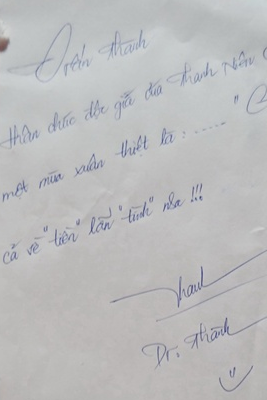 Trấn Thành
thân chúc độc giả của Thanh Niên
một mùa xuân thiệt là : ...... "
cả về "tiền" lẫn "tình" nữa !!!
Dr. Thành